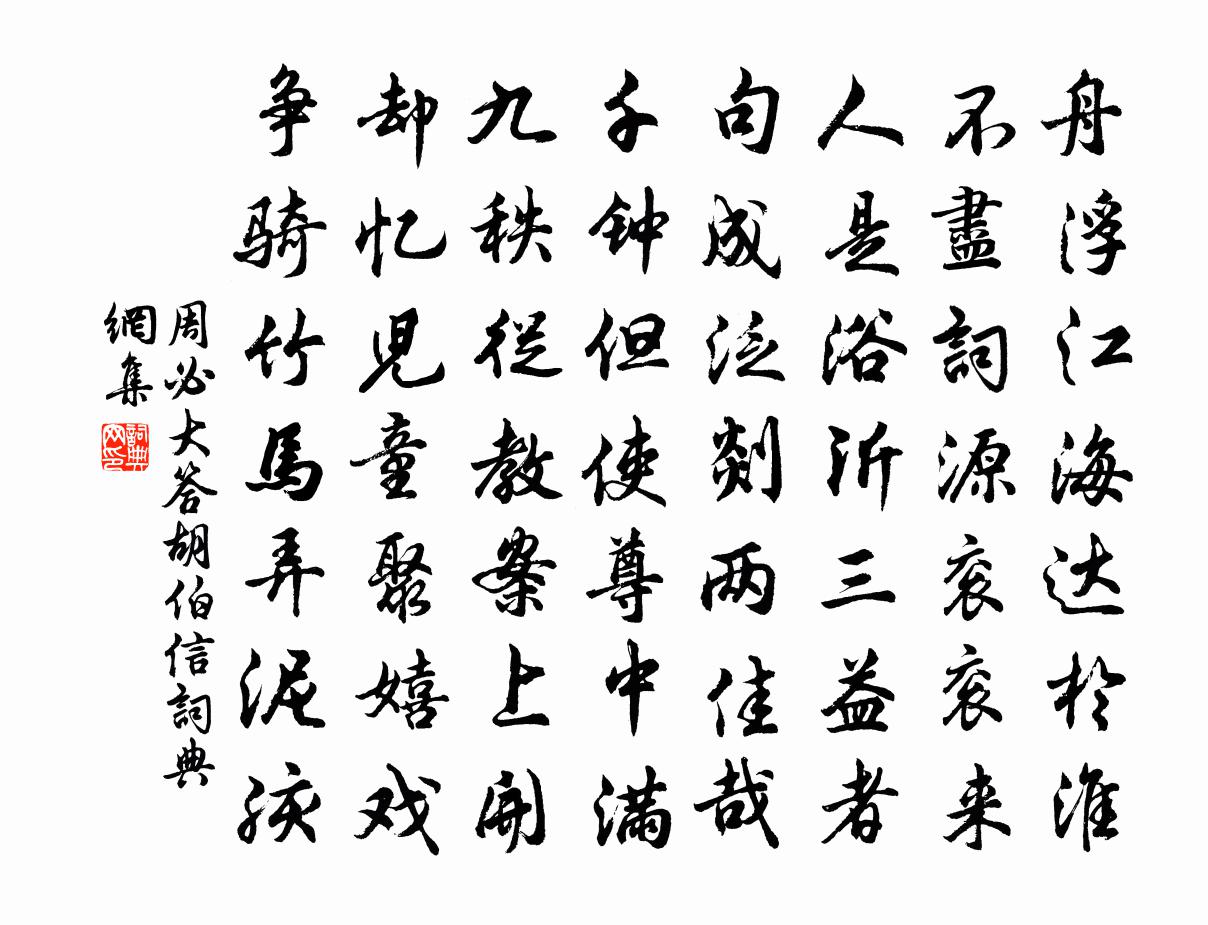 舟浮江海达於淮
不盡詞源衮衮来
人是浴沂三益者
句成泛剡两佳哉
千钟但使尊中满
九秩従教案上開
却忆児童聚嬉戏
争骑竹馬弄泥孩
周必大答胡伯信詞典
網集
詞典網印